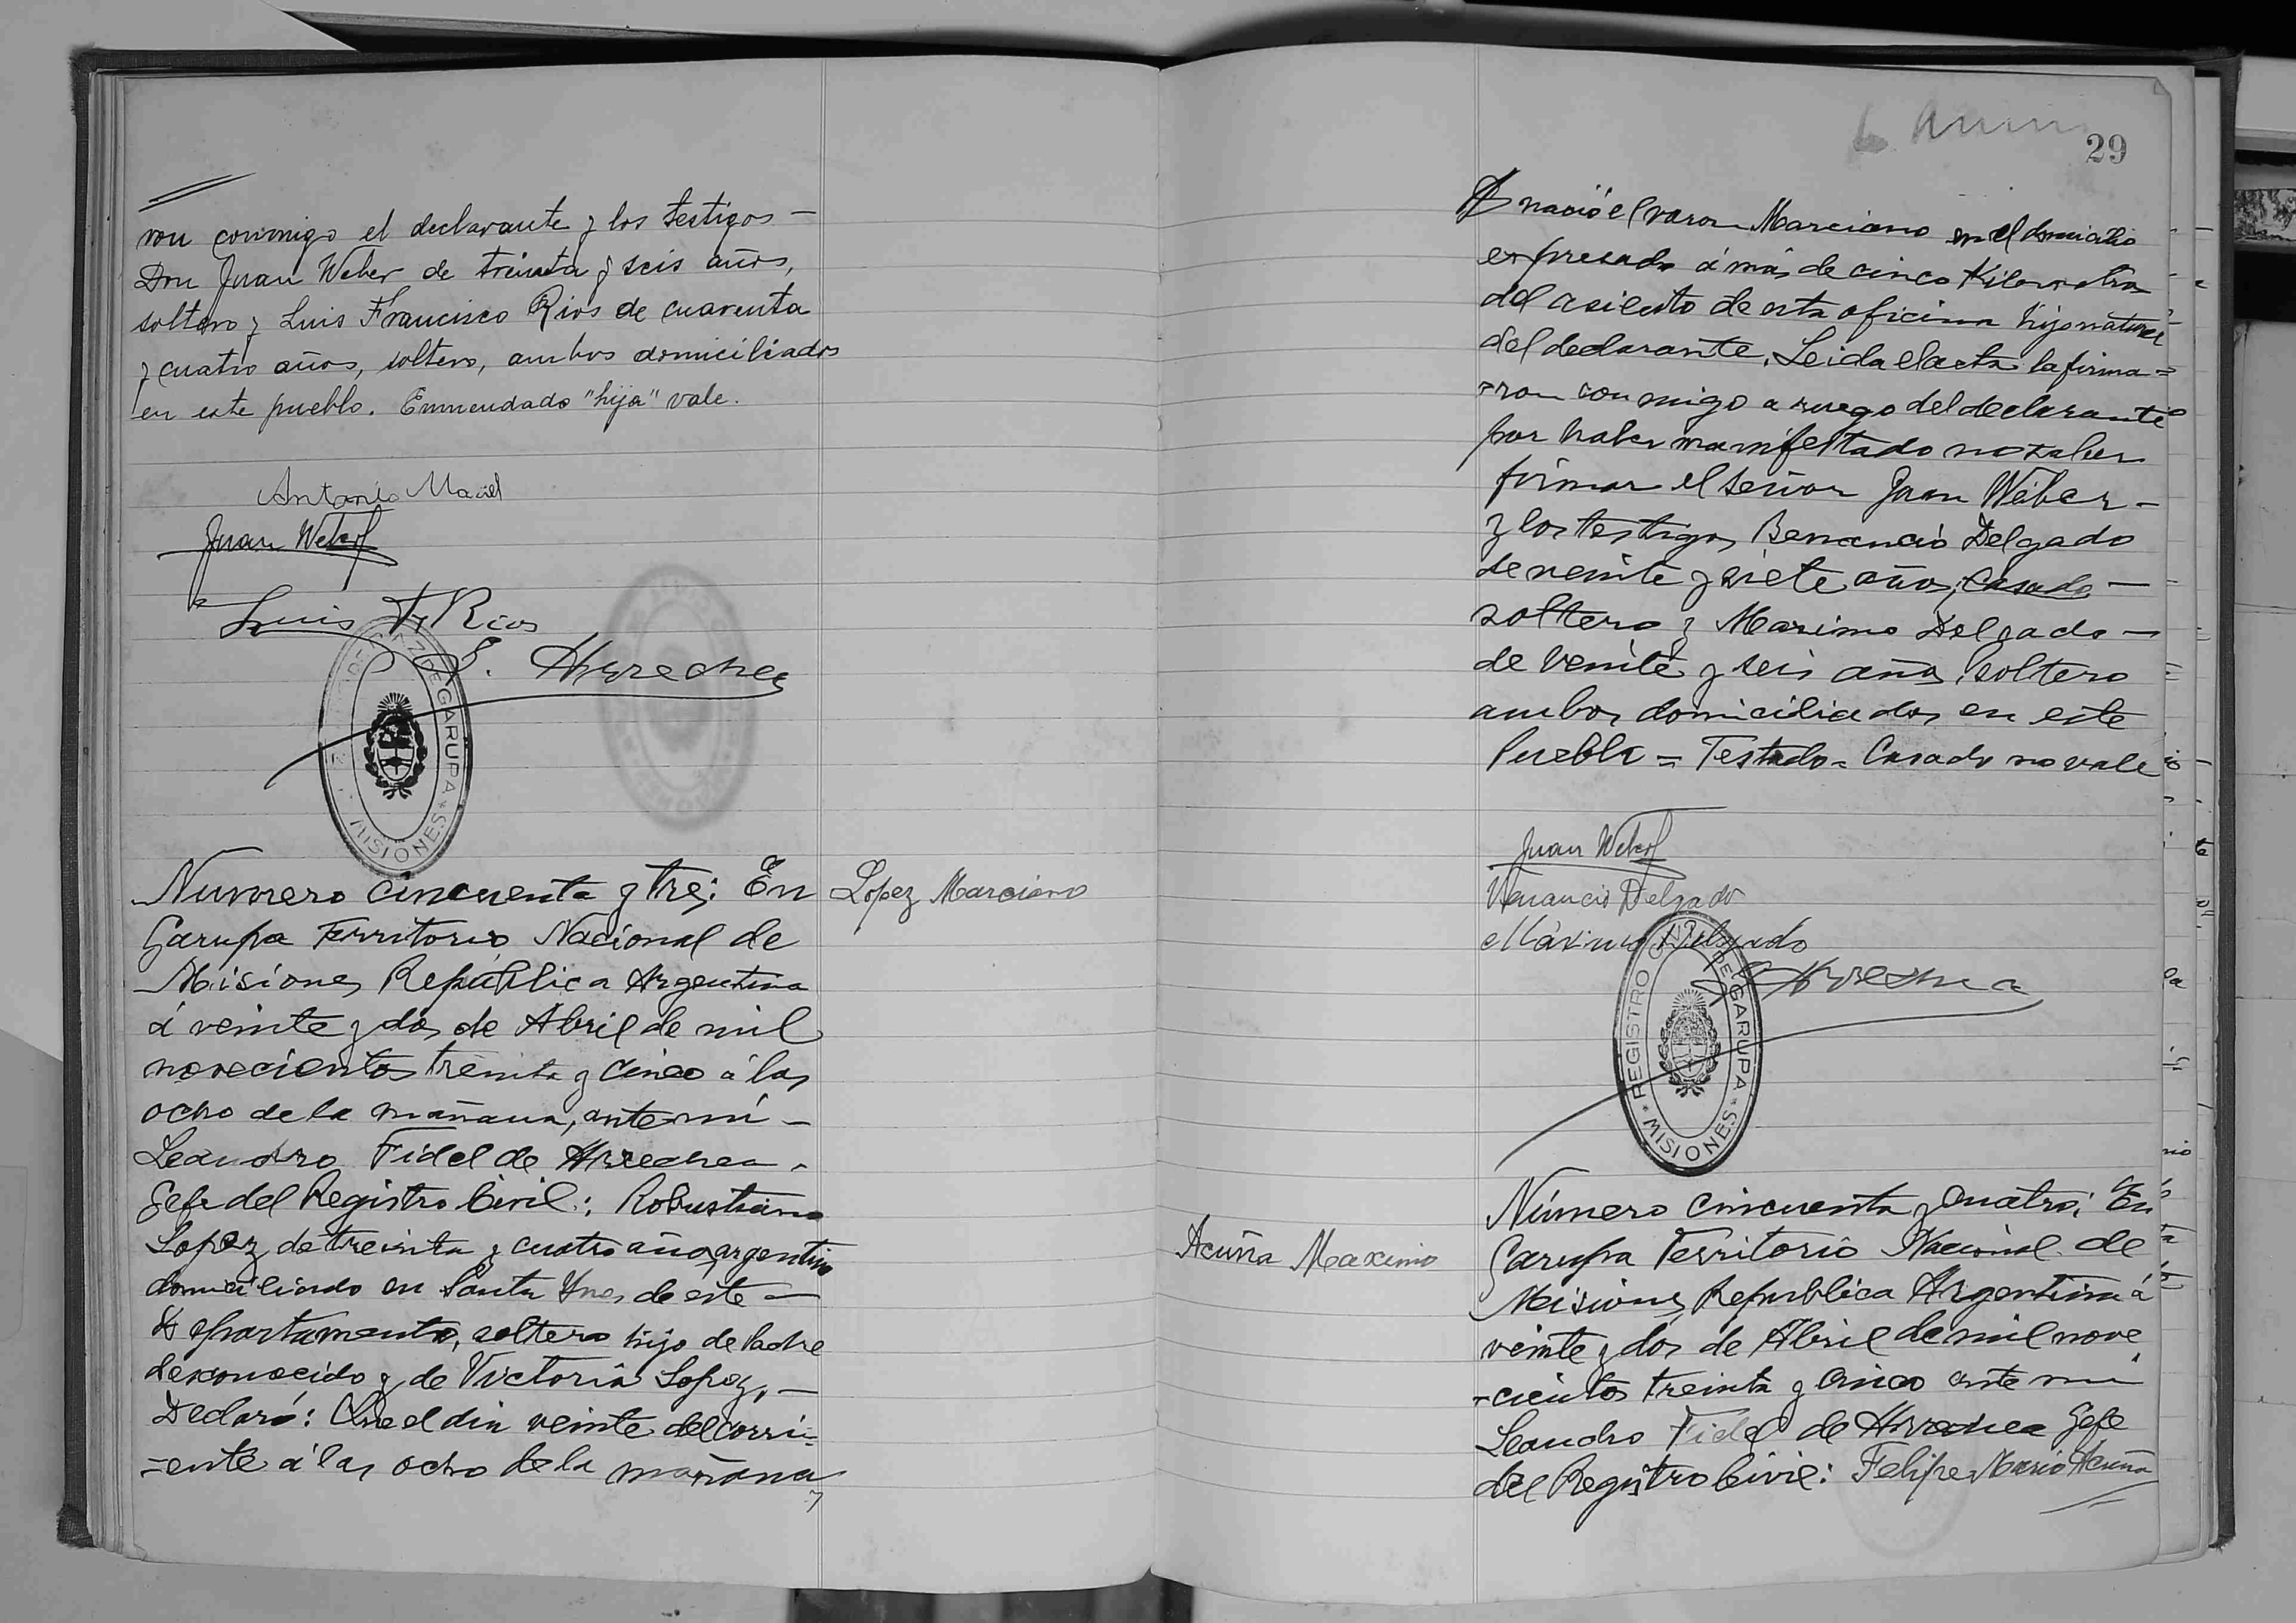 ron conmigo el declarante y los testigos —
Don Juan Weber de treinta y seis años,
soltero y Luis Francisco Rios de cuarenta
y cuatro años, soltero, ambos domiciliados
en este pueblo. Enmendado "hija" vale.
Antonio Maciel
Juan Weber
Luis F. Rios
Arrechea
GARUPA * MISIONES
Numero cincuenta y tres: En
Garupa Territorio Nacional de
Misiones, Republica Argentina
á veinte y dos de Abril de mil
novecientos treinta y cinco á las
ocho de la mañana, ante mi —
Leandro Fidel de Arrechea.
Gefe del Registro Civil: Robustiano
Lopez de treinta y cuatro años, argentino
domiciliado en Santa Ynes de este —
departamento, soltero hijo de Padre
desconocido y de Victoria Lopez, —
Declaró: Que el dia veinte del corri=
=ente á las ocho de la mañana
Lopez Marciano
29
nació el varon Marciano en el domicilio
expresado á más de cinco Kilometros
del asiento de esta oficina hijo natural
del declarante. Leida el acta la firma=
=ron conmigo a ruego del declarante
por haber manifestado no saber
firmar el señor Juan Weber —
y los testigos Benancio Delgado
de veinte y siete años, Casado —
soltero y Maximo Delgado —
de veinte y seis años, soltero
ambos domiciliados en este
Pueblo = Testado = Casado no vale
Juan Weber
Venancio Delgado
Máximo Delgado
Arrechea
REGISTRO CIVIL DE GARUPA * MISIONES *
Acuña Maximo
Número cincuenta y cuatro: En
Garupa Territorio Nacional de
Misiones, Republica Argentina á
veinte y dos de Abril de mil nove
=cientos treinta y cinco ante mi
Leandro Fidel de Arrechea Gefe
del Registro Civil: Felipe Mario Acuña